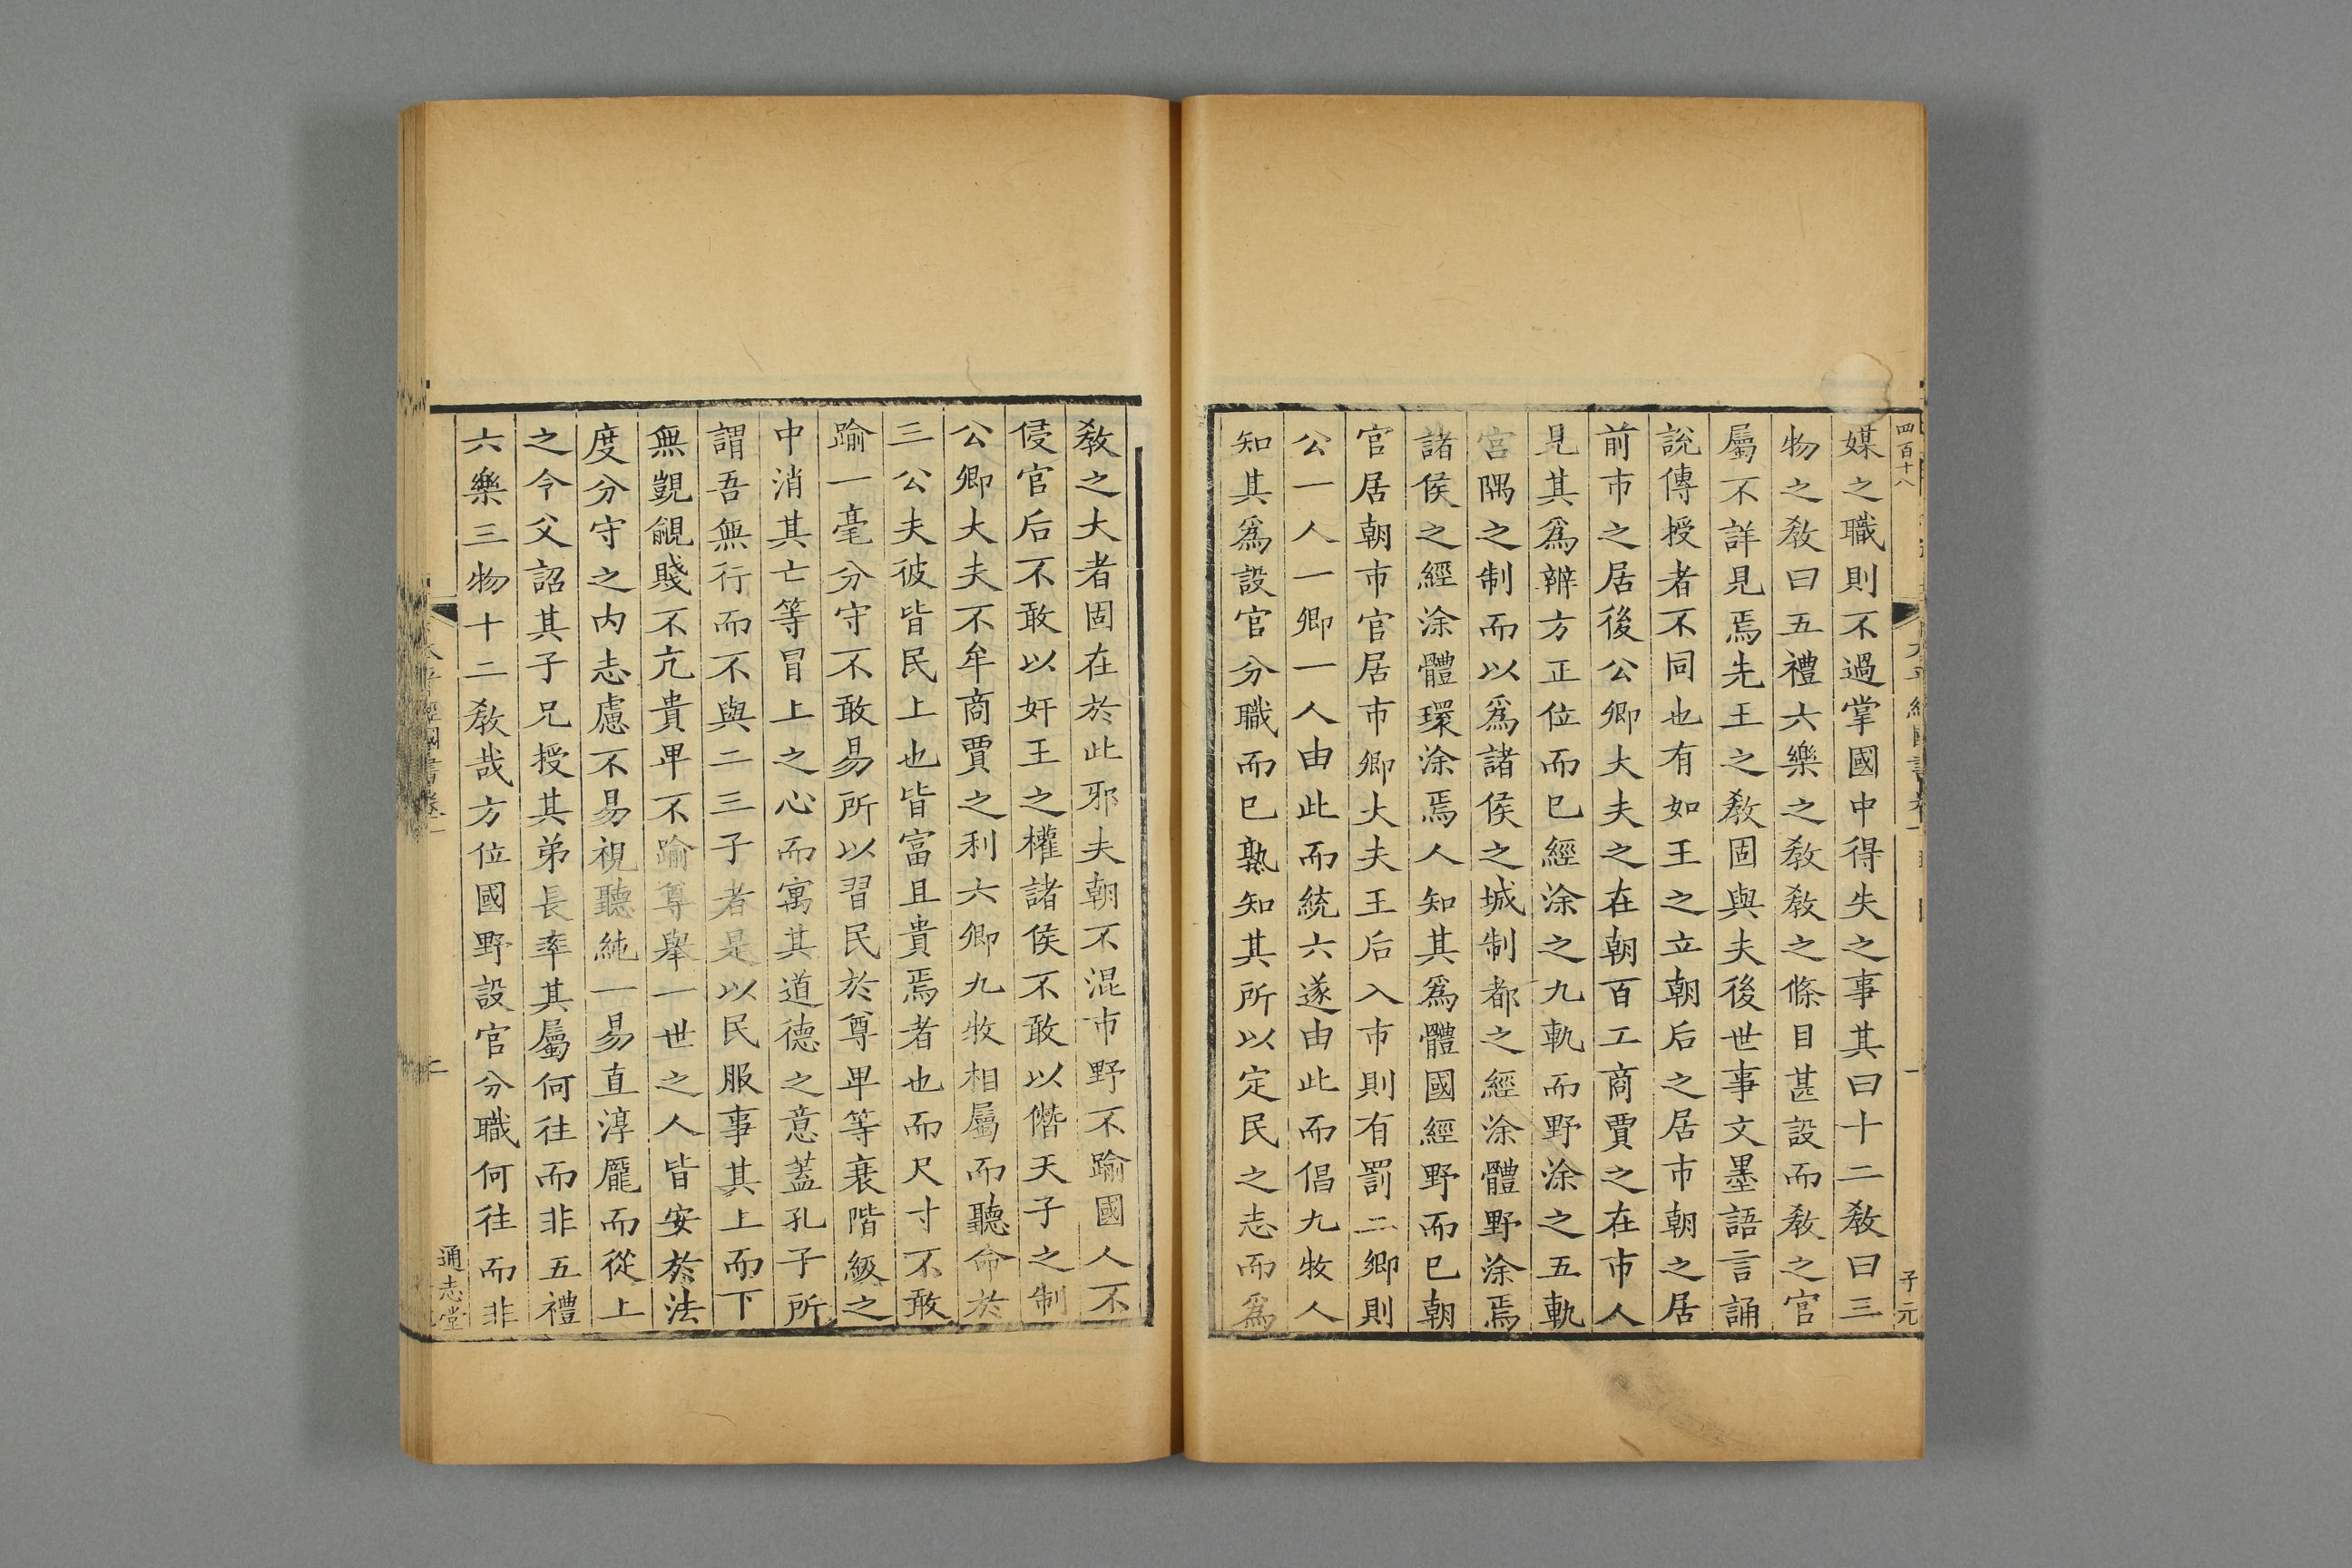 四百十八
子元
媒之職則不過掌國中得失之事其曰十二敎曰三
物之敎曰五禮六樂之敎敎之條目甚設而敎之官
屬不詳見焉先王之敎固與夫後世事文墨語言誦
說傳授者不同也有如王之立朝后之居市朝之居
前市之居後公卿大夫之在朝百工商賈之在市人
見其爲辨方正位而已經涂之九軌而野涂之五軌
宮隅之制而以爲諸侯之城制都之經涂體野涂焉
諸侯之經涂體環涂焉人知其爲體國經野而已朝
官居朝市官居市卿大夫王后入市則有罰二鄉則
公一人一鄉一人由此而統六遂由此而倡九牧人
知其爲設官分職而已孰知其所以定民之志而爲
敎之大者固在於此邪夫朝不混市野不踰國人不
侵官后不敢以奸王之權諸侯不敢以僭天子之制
公卿大夫不牟商賈之利六卿九牧相屬而聽命於
三公夫彼皆民上也皆富且貴焉者也而尺寸不敢
踰一毫分守不敢易所以習民於尊卑等衰階級之
中消其亡等冒上之心而寓其道德之意蓋孔子所
謂吾無行而不與二三子者是以民服事其上而下
無覬覦賤不亢貴卑不踰尊舉一世之人皆安於法
度分守之內志慮不易視聽純一易直淳龐而從上
之令父詔其子兄授其弟長率其屬何往而非五禮
六樂三物十二敎哉方位國野設官分職何往而非
通志堂